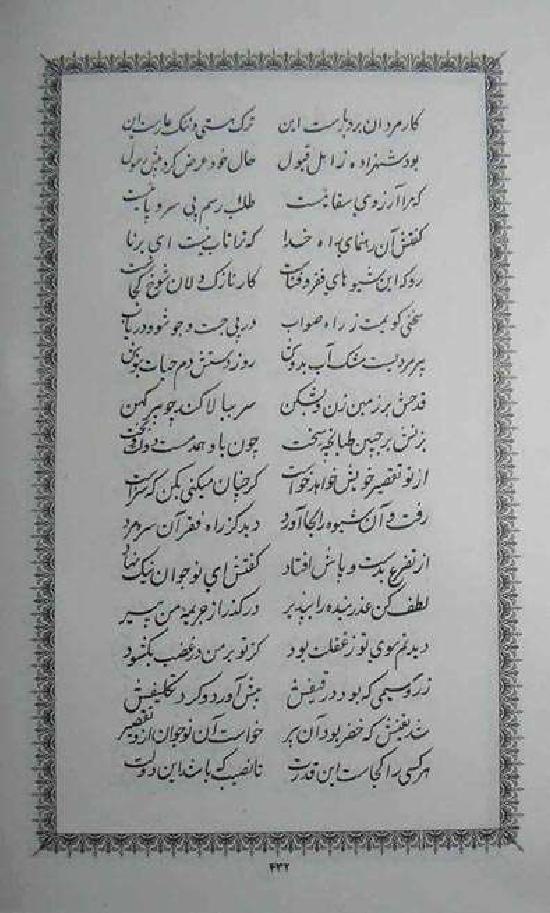 کار مردان بردبارست این ترک مستی و ننگ عارست این
بود شهزاده ز اهل قبول حال خود عرض کرد پیش رسول
کمرا آرزوی سقائیست طالب رسم بی سر و پائیست
گفتش آن رهنمای راه خدا که ترا تاب نیست ای برنا
رو که این شیوه های فقر و فناست کار نازک دلان شوخ کجاست
سخنی گویمت ز راه صواب در پی جست و جو شو و دریاب
پیرمردیست مشک آب بدوش روز و شب
قدحش بر زمین زن و بشکن سر ببالا کند چو پیر کهن
بزنش بر جبین طپانچه سخت چون
از تو تقصیر خویش خواهد خواست گر چنان میکنی بکن که سزاست
رفت و آن شیوه را بجا آورد دید کز راه فقر آن سره مرد
از تضرع بدست و پاش افتاد گفتش ای نوجوان نیک نهاد
لطف کن عذر بنده را بپذیر در گذر از جریمه من پیر
دیدنم سوی تو ز غفلت بود کز تو بر من در غضب بگشود
زر و سیمی که بود در قیفش پیش آورد و کرد تکلیفش
شد یقینش که خضر بود آن پیر خواست آن نوجوان ازو تقصیر
هر کسی را کجاست این قدرت تا نصیب که باشد این دولت
۴۳۲